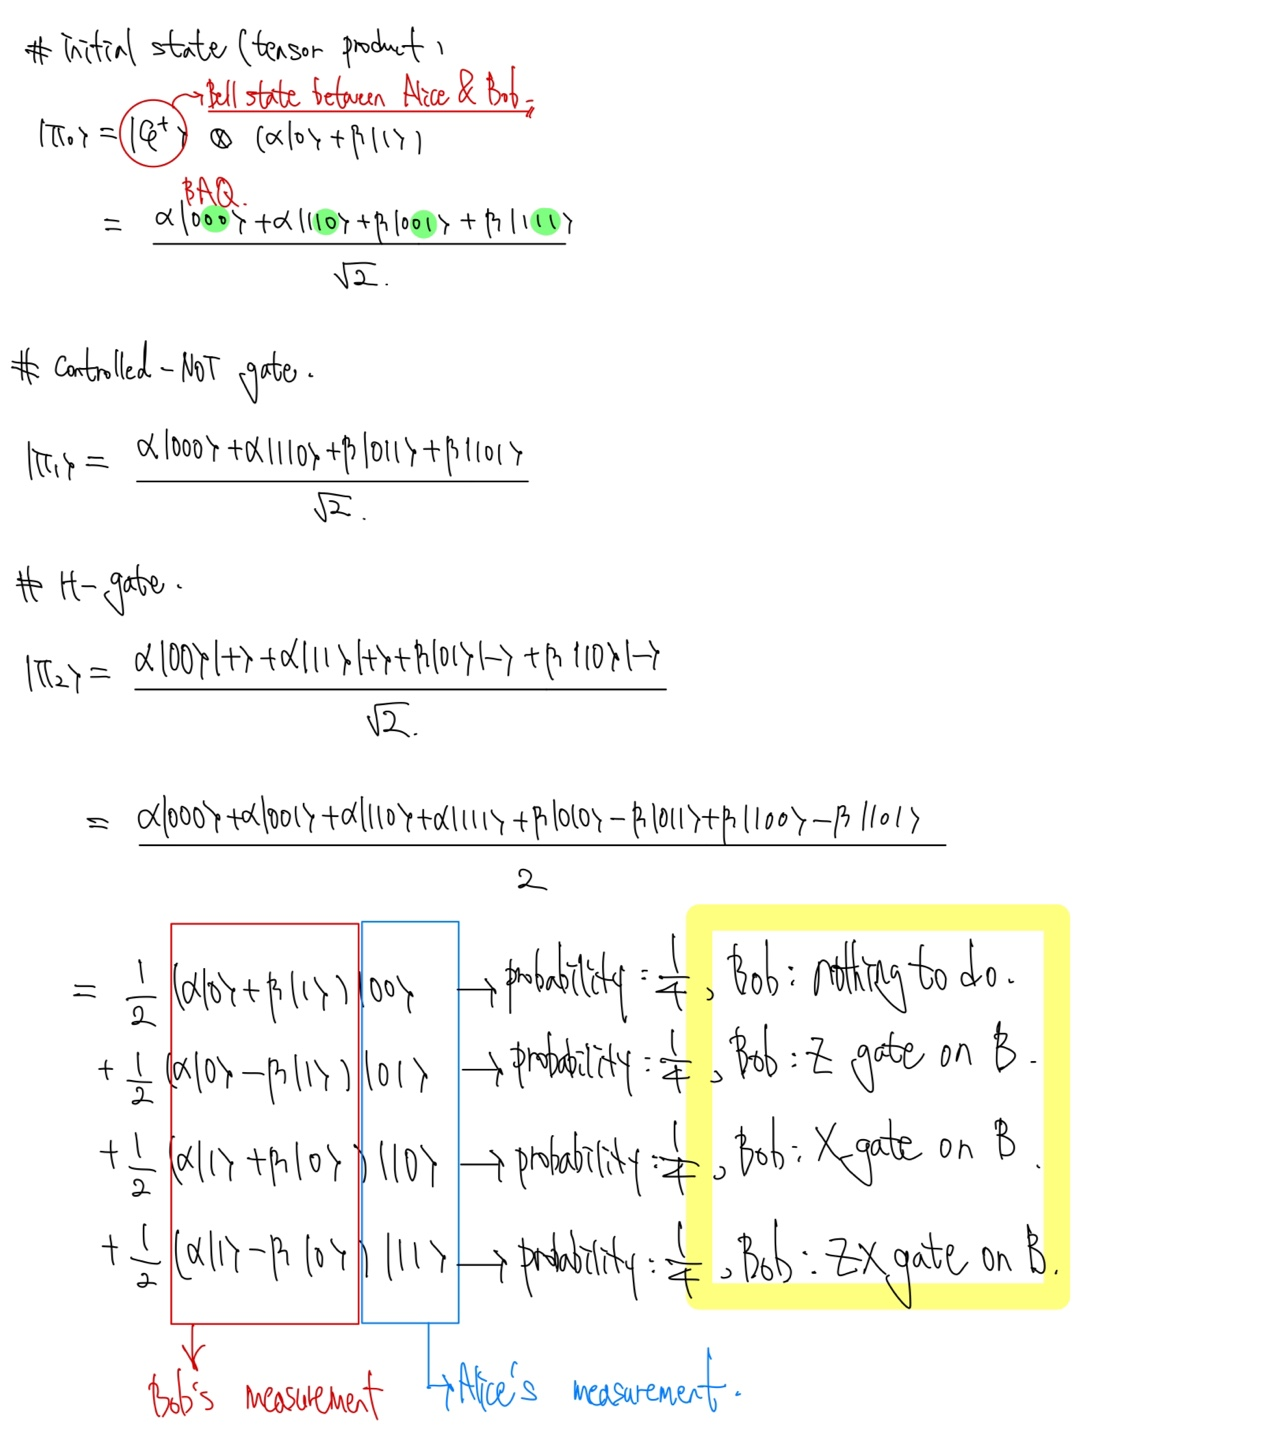 # initial state (tensor product)
→ Bell state between Alice & Bob.
|π₀⟩ = |φ⁺⟩ ⊗ (α|0⟩ + β|1⟩)
BAQ.
= α|000⟩ + α|110⟩ + β|001⟩ + β|111⟩
√2.
# Controlled-NOT gate.
|π₁⟩ = α|000⟩ + α|110⟩ + β|011⟩ + β|101⟩
√2.
# H-gate.
|π₂⟩ = α|00⟩|+⟩ + α|11⟩|+⟩ + β|01⟩|-⟩ + β|10⟩|-⟩
√2.
= α|000⟩ + α|001⟩ + α|110⟩ + α|111⟩ + β|010⟩ - β|011⟩ + β|100⟩ - β|101⟩
2
= 1/2 (α|0⟩ + β|1⟩) |00⟩ → probability = 1/4, Bob : nothing to do.
+ 1/2 (α|0⟩ - β|1⟩) |01⟩ → probability = 1/4, Bob : Z gate on B.
+ 1/2 (α|1⟩ + β|0⟩) |10⟩ → probability = 1/4, Bob : X gate on B.
+ 1/2 (α|1⟩ - β|0⟩) |11⟩ → probability : 1/4, Bob : ZX gate on B.
Bob's measurement → Alice's measurement.